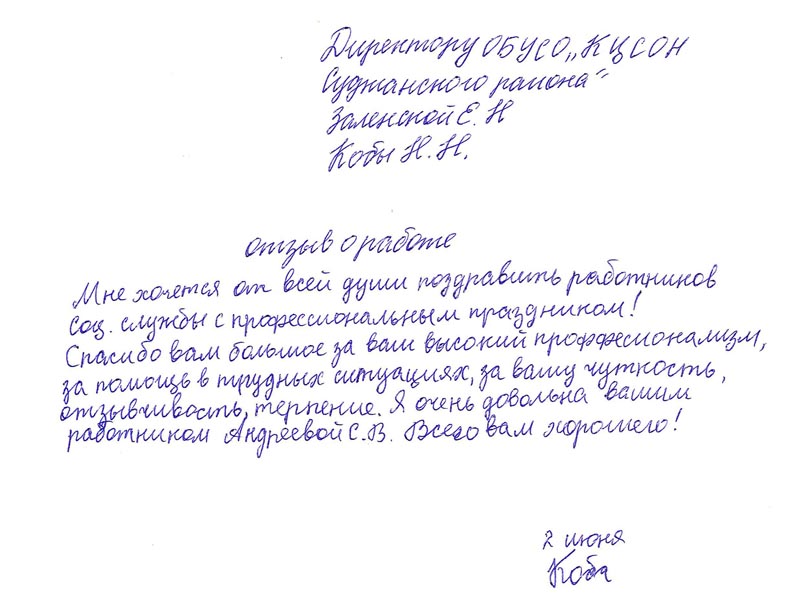 Директору ОБУСО „КЦСОН
Суджанского района"
Заленской Е. Н
Кобы Н. Н.
отзыв о работе
Мне хочется от всей души поздравить работников
соц. службы с профессиональным праздником!
Спасибо вам большое за ваш высокий проффесионализм,
за помощь в трудных ситуациях, за вашу чуткость,
отзывчивость, терпение. Я очень довольна вашим
работником Андреевой С. В. Всего вам хорошего!
2 июня
Коба